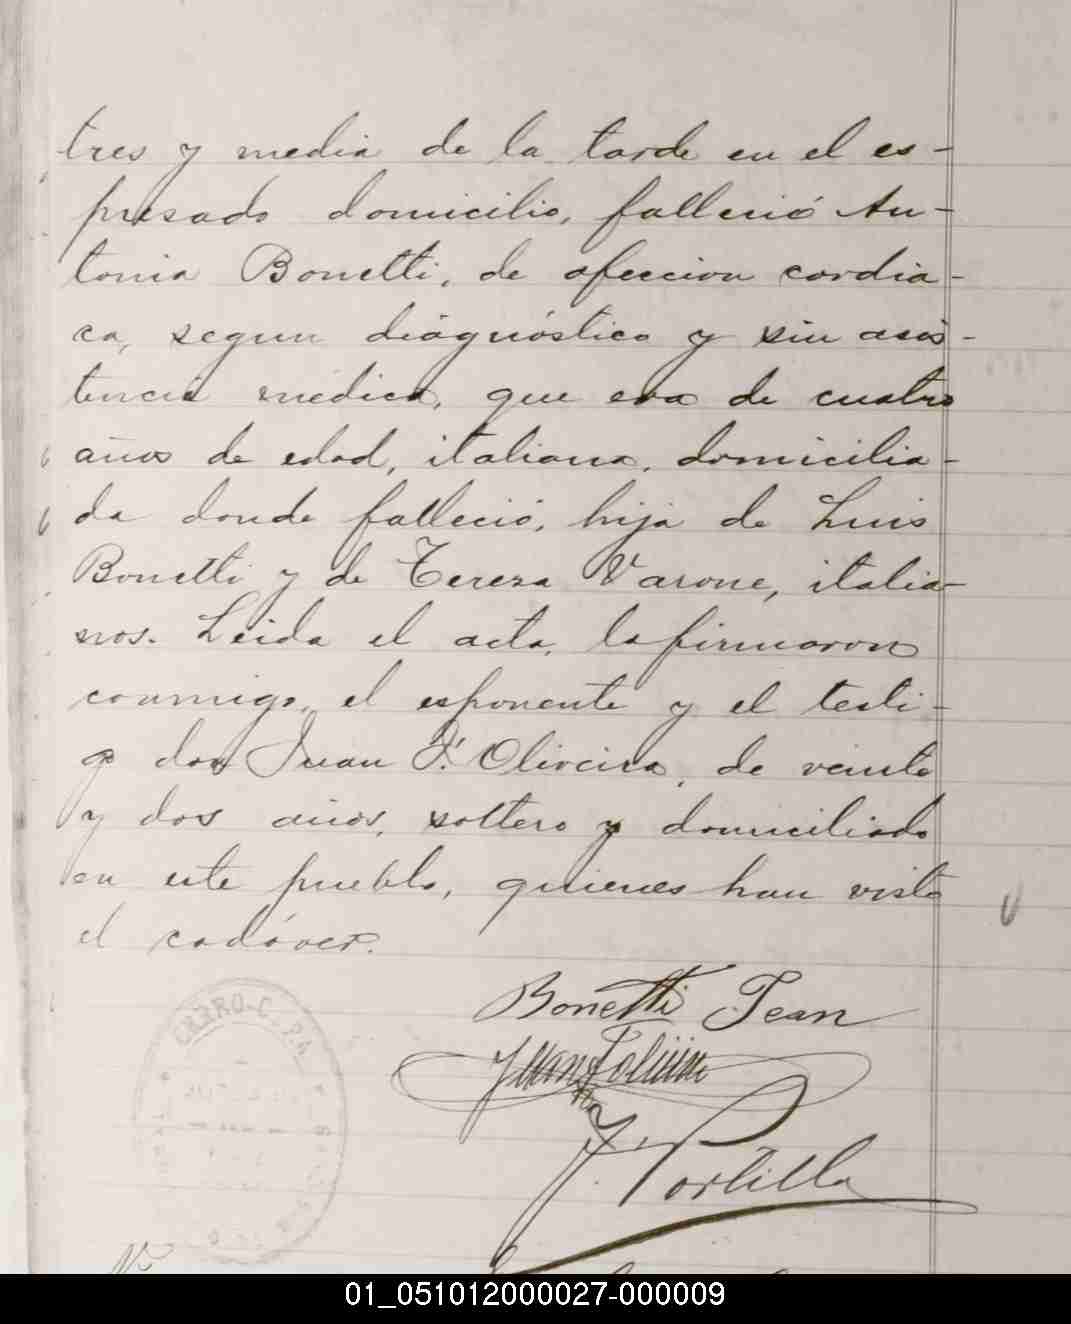 tres y media de la tarde en el es-
presado domicilio, falleció An-
tonia Bonetti, de afeccion cardia-
ca, segun diagnóstico y sin asis-
tencia médica, que era de cuatro
años de edad, italiana, domicilia-
da donde falleció, hija de Luis
Bonetti y de Tereza Varone, italia-
nos. Leida el acta, la firmaron
conmigo, el esponente y el testi-
go don Juan F. Oliveira, de veinte
y dos años, soltero y domiciliado
en este pueblo, quienes han visto
el cadáver.
Bonetti Jean
Juan
J. Portilla
CERRO-C. P.A.
Nº
01_051012000027-000009